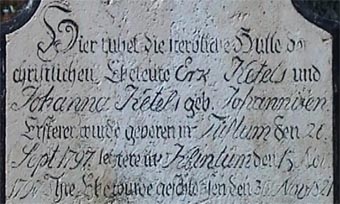 Hier ruhet die sterbliche Hülle der
christlichen Eheleute Erk Ketels und
Johanna Ketels geb. Johannsen
Ersterer wurde geboren in den 2
Sept 1797 letztere in Klintum den 15
Ihre Ehe wurde geschlossen den